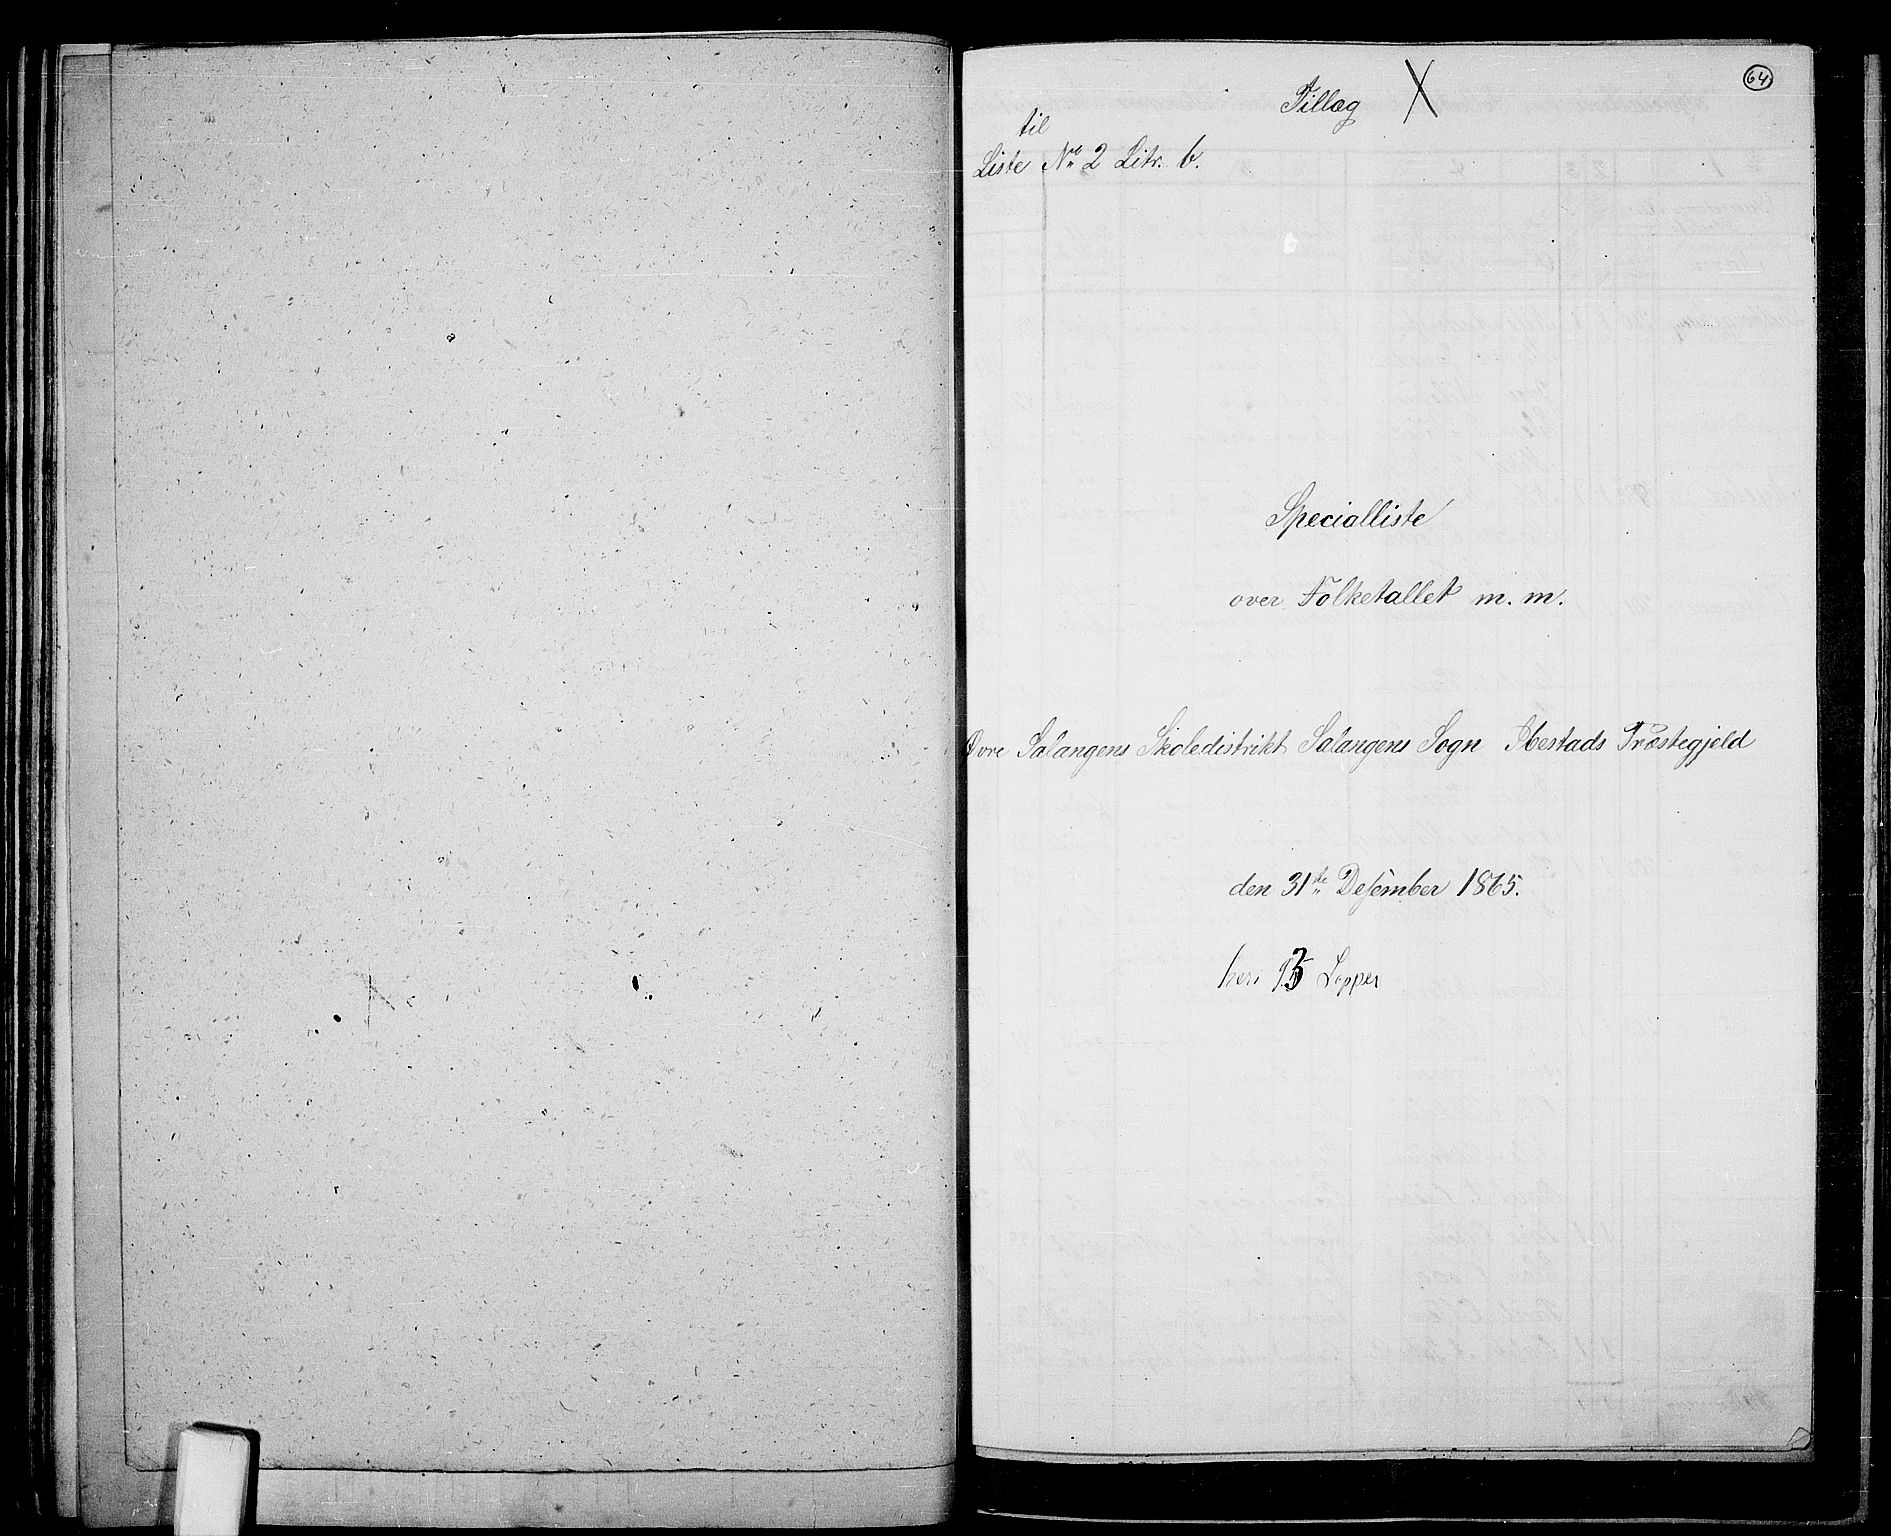 64
Tillæg X
til
Liste No 2 Litr. b.
Specialliste
over Folketallet m. m.
Øvre Salangens Skoledistrikt Salangens Sogn Ibestads Præstegjeld
den 31te Desember 1865.
heri Lapper